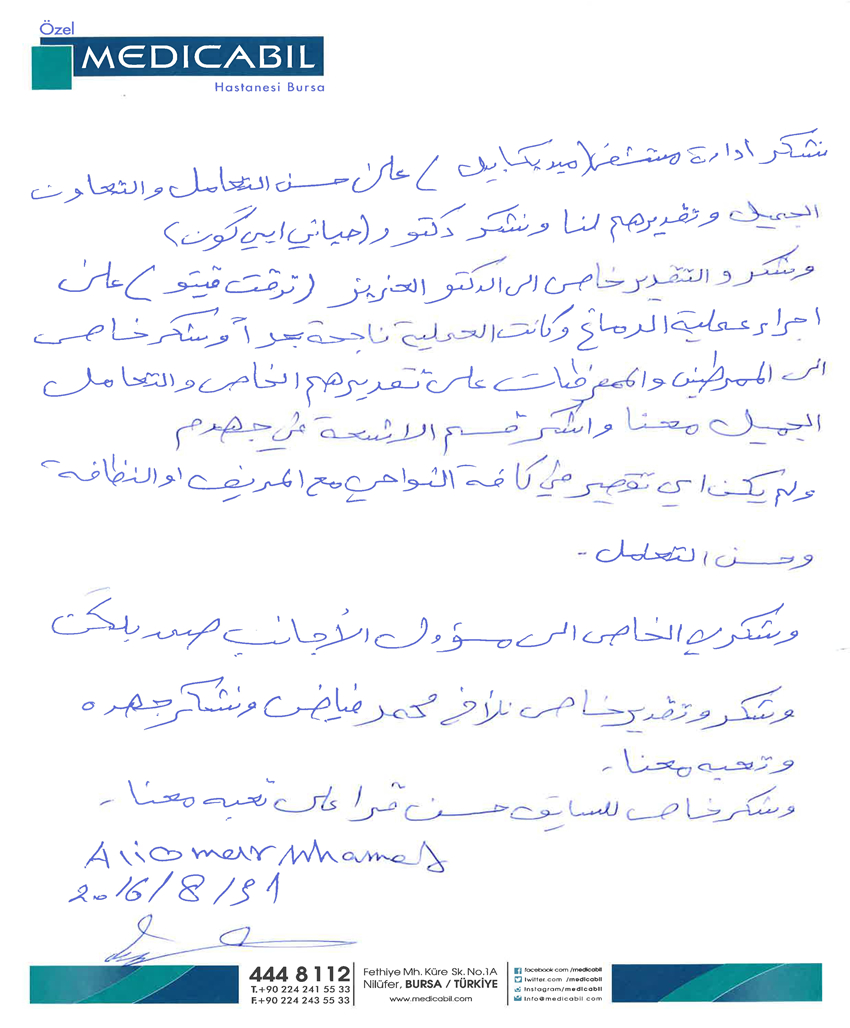 Özel
MEDICABIL
Hastanesi Bursa
نشكر ادارة مستشفى (ميديكابيل) على حسن التعامل والتعاون
الجميل وتقديرهم لنا ونشكر دكتور (حياتي ايي گون)
وشكر والتقدير خاص الى الدكتو العزيز (ترقت قيتو) على
اجراء عملية الدماغ وكانت العملية ناجحة جداً وشكر خاص
الى الممرضين والممرضات على تقديرهم الخاص والتعامل
الجميل معنا واشكر قسم الاشعة في جهدهم
ولم يكن اي تقصير في كافة النواحي مع المريض او النظافة
وحسن التعامل -
وشكري الخاص الى مسؤول الأجانب
وشكر وتقدير خاص للأخ محمد فياض ونشكر جهده
وتعبه معنا -
وشكر خاص للسايق حسن قرا على تعبه معنا -
Ali Omar Mhamed
2016/8/31
444 8 112
T.+90 224 241 55 33
F.+90 224 243 55 33
Fethiye Mh. Küre Sk. No.1A
Nilüfer, BURSA / TÜRKİYE
www.medicabil.com
facebook.com/medicabil
twitter.com/medicabil
instagram/medicabil
info@medicabil.com